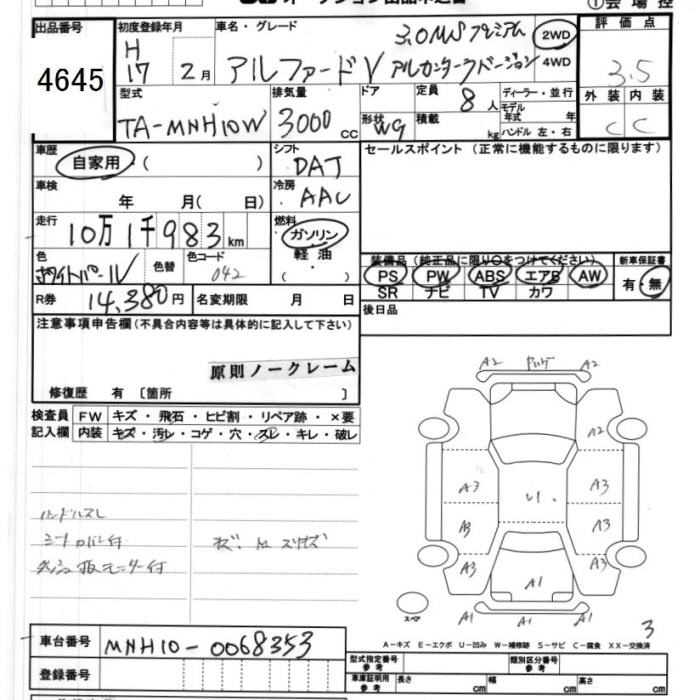 ①会場控
出品番号
4645
初度登録年月
H
17 2月
車名・グレード
3.0MSプレミアム
アルファードV アルカンターラバージョン
2WD
4WD
評価点
3.5
外装 内装
C C
型式
TA-MNH10W
排気量
3000cc
ドア
形状
WG
定員
8人
積載
kg
ディーラー・並行
モデル
年式 年
ハンドル 左・右
車歴
自家用 ( )
シフト
DAT
セールスポイント (正常に機能するものに限ります)
車検
年 月( 日)
冷房
AAC
走行
10万1千983km
燃料
ガソリン
軽油
( ・ )
色
ホワイトパール
色替
色コード
042
装備品 (純正品に限り○をつけてください)
PS PW ABS エアB AW
SR ナビ TV カワ
新車保証書
有・無
R券
14,380円
名変期限 月 日
後日品
注意事項申告欄(不具合内容等は具体的に記入して下さい)
原則ノークレーム
修復歴 有 〔箇所 〕
検査員
記入欄
FW キズ・飛石・ヒビ割・リペア跡・×要
内装 キズ・汚レ・コゲ・穴・スレ・キレ・破レ
ハンドルスレ
シートカバー付
キズ
A2 A2
A2
A3 A3
A3 A3
A3 A3
A1
A1 A1
スペア
3
A-キズ E-エクボ U-凹み W-補修跡 S-サビ C-腐食 XX-交換済
車台番号
MNH10-0068353
登録番号
型式指定番号
参考
類別区分番号
参考
車庫証明用
参考
長さ cm
幅 cm
高さ cm